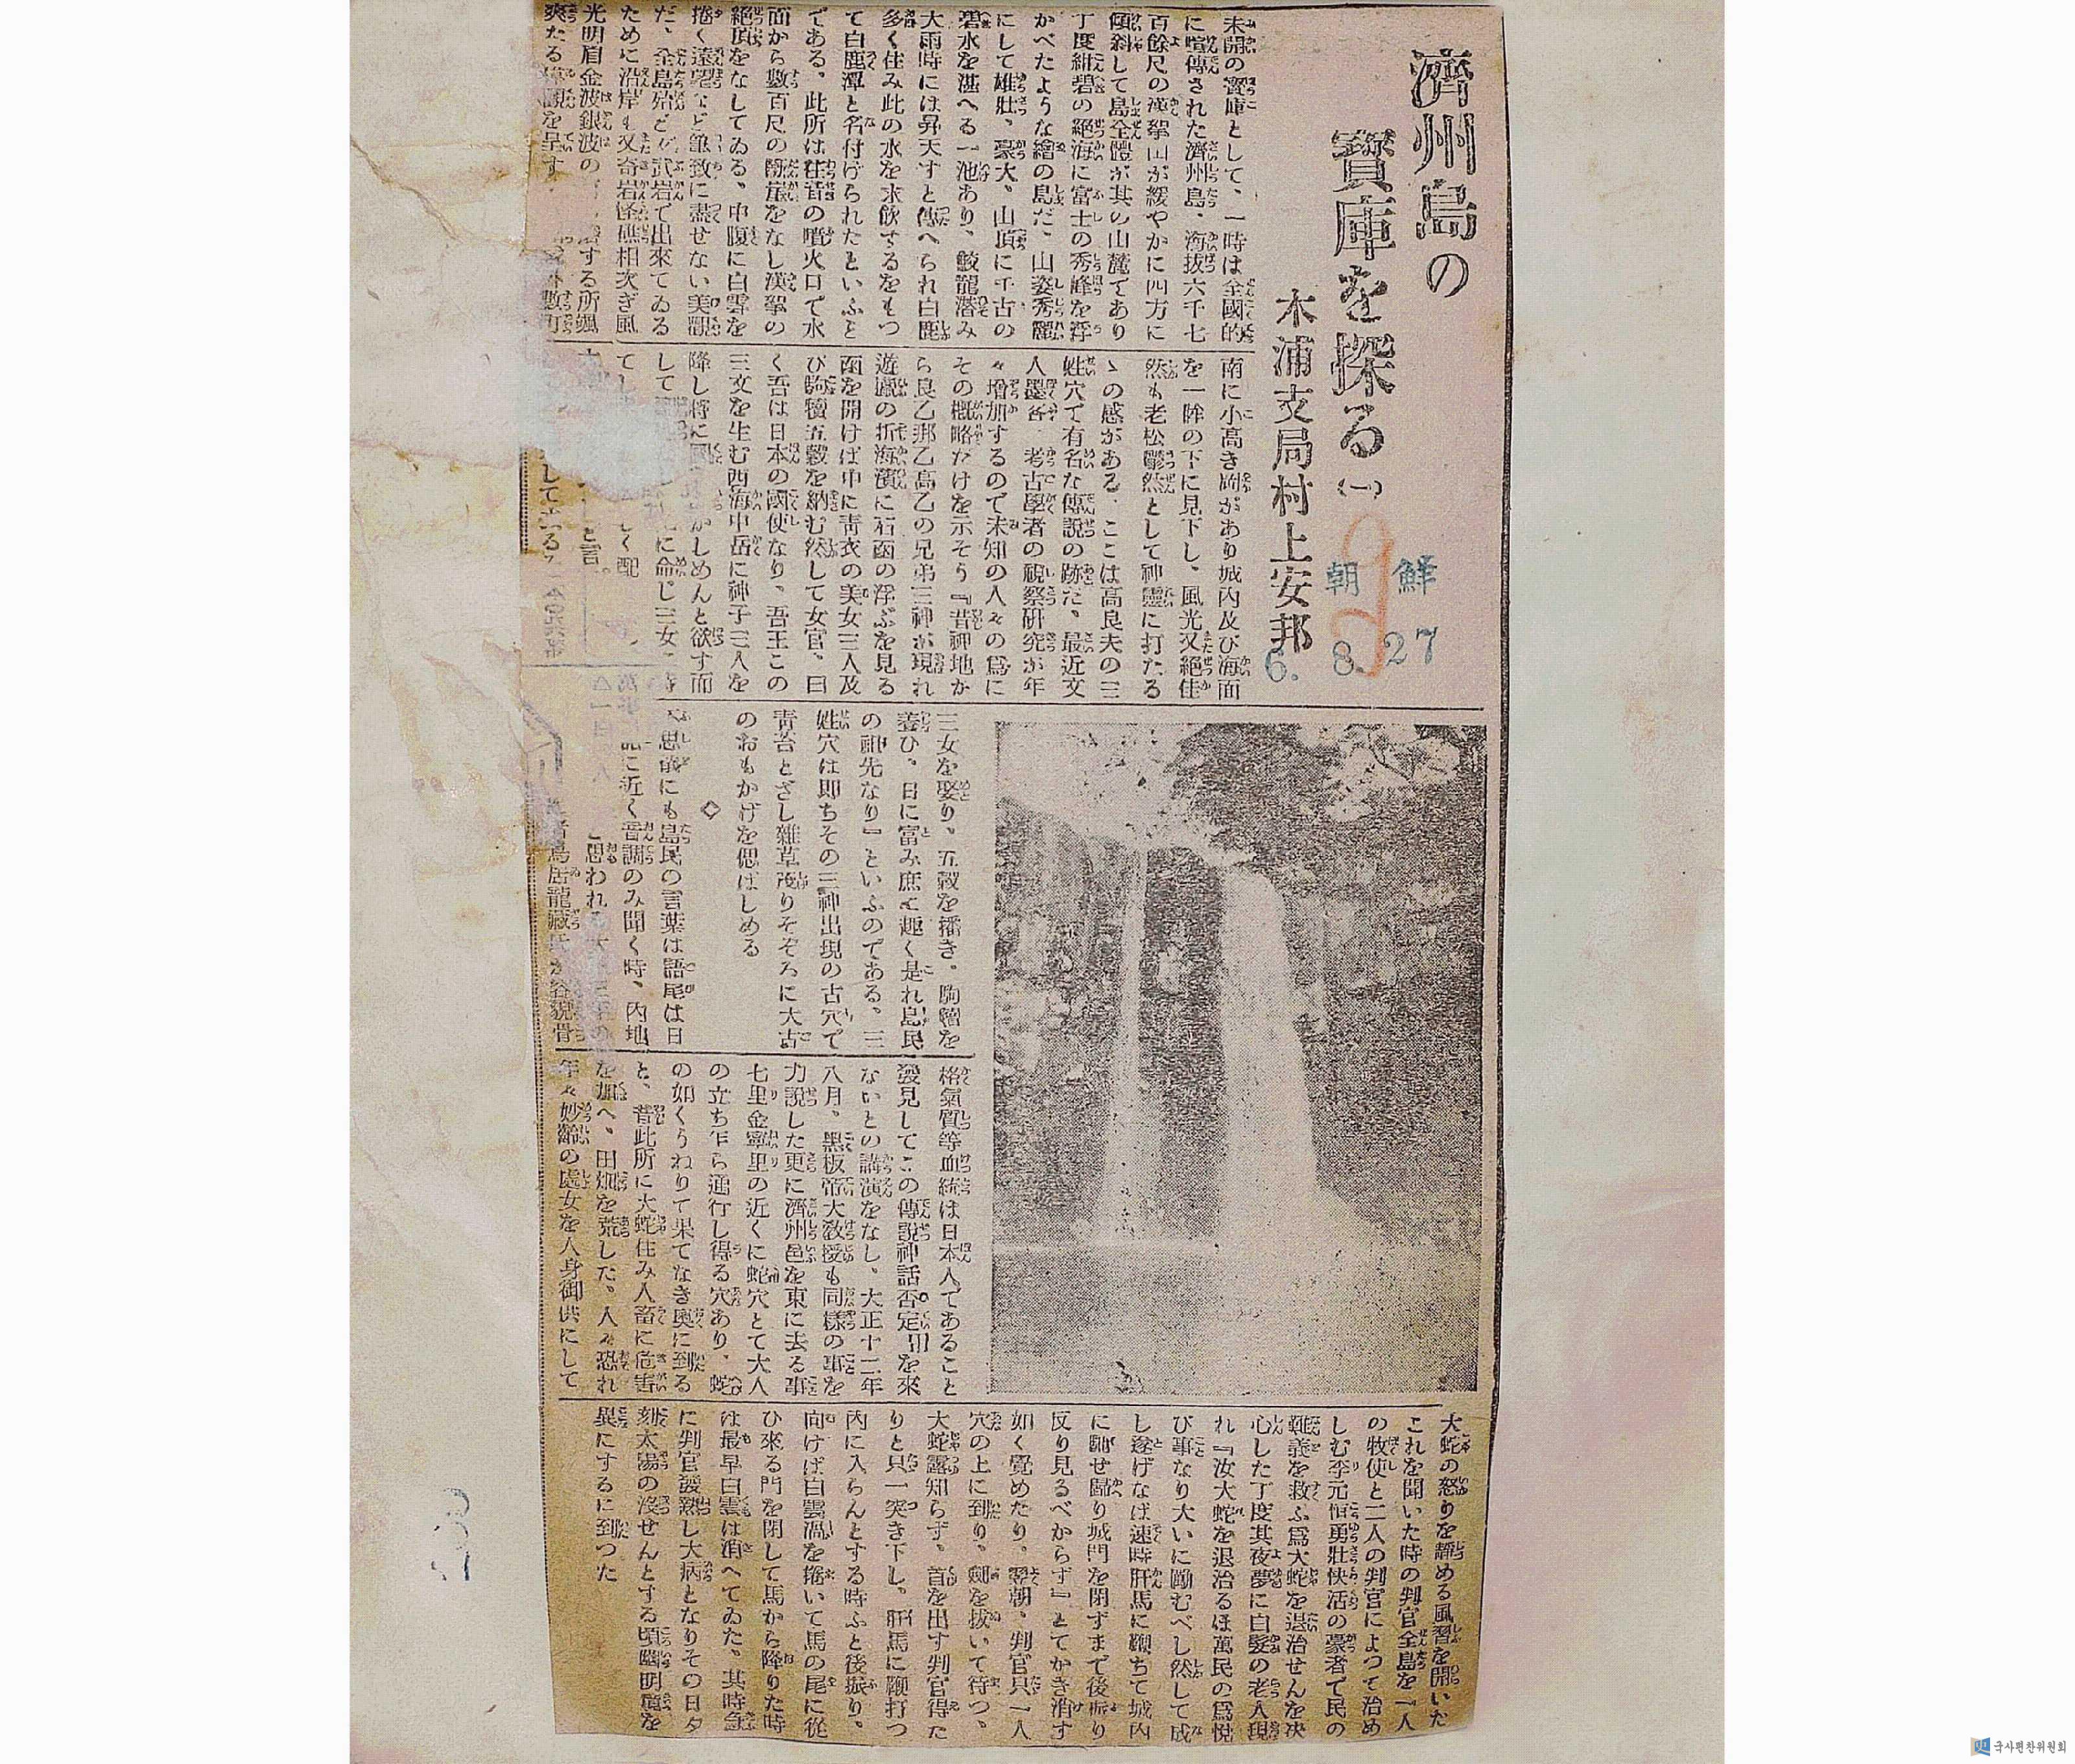 濟州島の
寳庫を探る(一)
木浦支局村上安邦
朝鮮
6. 8. 27
未開の寳庫として、一時は全國的
に喧傳された濟州島、海拔六千七
百餘尺の漢拏山が緩やかに四方に
傾斜して島全體が其の山麓であり
丁度紺碧の絶海に富士の秀峰を浮
かべたような繪の島だ、山姿秀麗
にして雄壯、豪大、山頂に千古の
碧水を湛へる一池あり、鮫龍潜み
大雨時には昇天すと傳へられ白鹿
多く住み此の水を求飮するをもつ
て白鹿潭と名付けられたといふと
である、此所は往昔の噴火口で水
面から數百尺の斷崖をなし漢拏の
絶頂をなしてゐる、中腹に白雲を
捲く遠望など筆致に盡せない美觀
だ、全島殆ど武岩で出來てゐる
ために沿岸も又奇岩怪礁相次ぎ風
光明眉金波銀波の する所颯
爽たる 觀を呈す 數町
南に小高き岡があり城内及び海面
を一眸の下に見下し、風光又絶佳
然も老松鬱然として神靈に打たる
ゝの感がある、ここは高良夫の三
姓穴で有名な傳説の跡だ、最近文
人墨客、考古學者の視察研究が年
々增加するので未知の人々の爲に
その概略だけを示そう『昔神地か
ら良乙那乙高乙の兄弟三神が現れ
遊獵の折海濱に石函の浮ぶを見る
函を開けば中に青衣の美女三人及
び駒犢五穀を納む然して女官、曰
く吾は日本の國使なり、吾王この
三女を生む西海中岳に神子三人を
降し將に國 かしめんと欲す而
して に命じ三女
てし く配
と言
して居る
三女を娶り、五穀を播き、駒犢を
養ひ、日に富み庶に趣く是れ島民
の祖先なり』といふのである、三
姓穴は即ちその三神出現の古穴で
青苔とざし雜草茂りそぞろに太古
のおもかげを偲ばしめる
◇
思議にも島民の言葉は語尾は日
に近く音調のみ聞く時、内地
思われ
者鳥居龍藏氏が容貌骨
格氣質等血統は日本人であること
發見してこの傳説神話否定 を來
ないとの講演をなし、大正十二年
八月、黑板帝大教授も同樣の事を
力説した更に濟州邑を東に去る事
七里金寧里の近くに蛇穴とて大人
の立ち乍ら通行し得る穴あり、蛇
の如くうねりて果てなき奥に到る
と、昔此所に大蛇住み人畜に危害
を加へ、田畑を荒した、人々恐れ
年々妙齡の處女を人身御供にして
大蛇の怒りを靜める風習を開いた
これを聞いた時の判官全島を一人
の牧使と二人の判官によつて治め
しむ李元恒勇壯快活の豪者で民の
難義を救ふ爲大蛇を退治せんを决
心した丁度其夜夢に白髮の老人現
れ『汝大蛇を退治るは萬民の爲悅
び事なり大いに勵むべし然して成
し遂げなば速時肝馬に鞭ちて城内
に馳せ歸り城門を閉ずまで後振り
反り見るべからず』とてかき消す
如く覺めたり。翌朝、判官只一人
穴の上に到り、劍を拔いて待つ、
大蛇露知らず、首を出す判官得た
りと只一突き下し、肝馬に鞭打つ
内に入らんとする時ふと後振り、
向けば白雲渦を捲いて馬の尾に從
ひ來る門を閉して馬から降りた時
は最早白雲は消へてゐた、其時急
に判官發熱し大病となりその日夕
刻太陽の沒せんとする頃幽明境を
異にするに到つた
国사편찬위원회